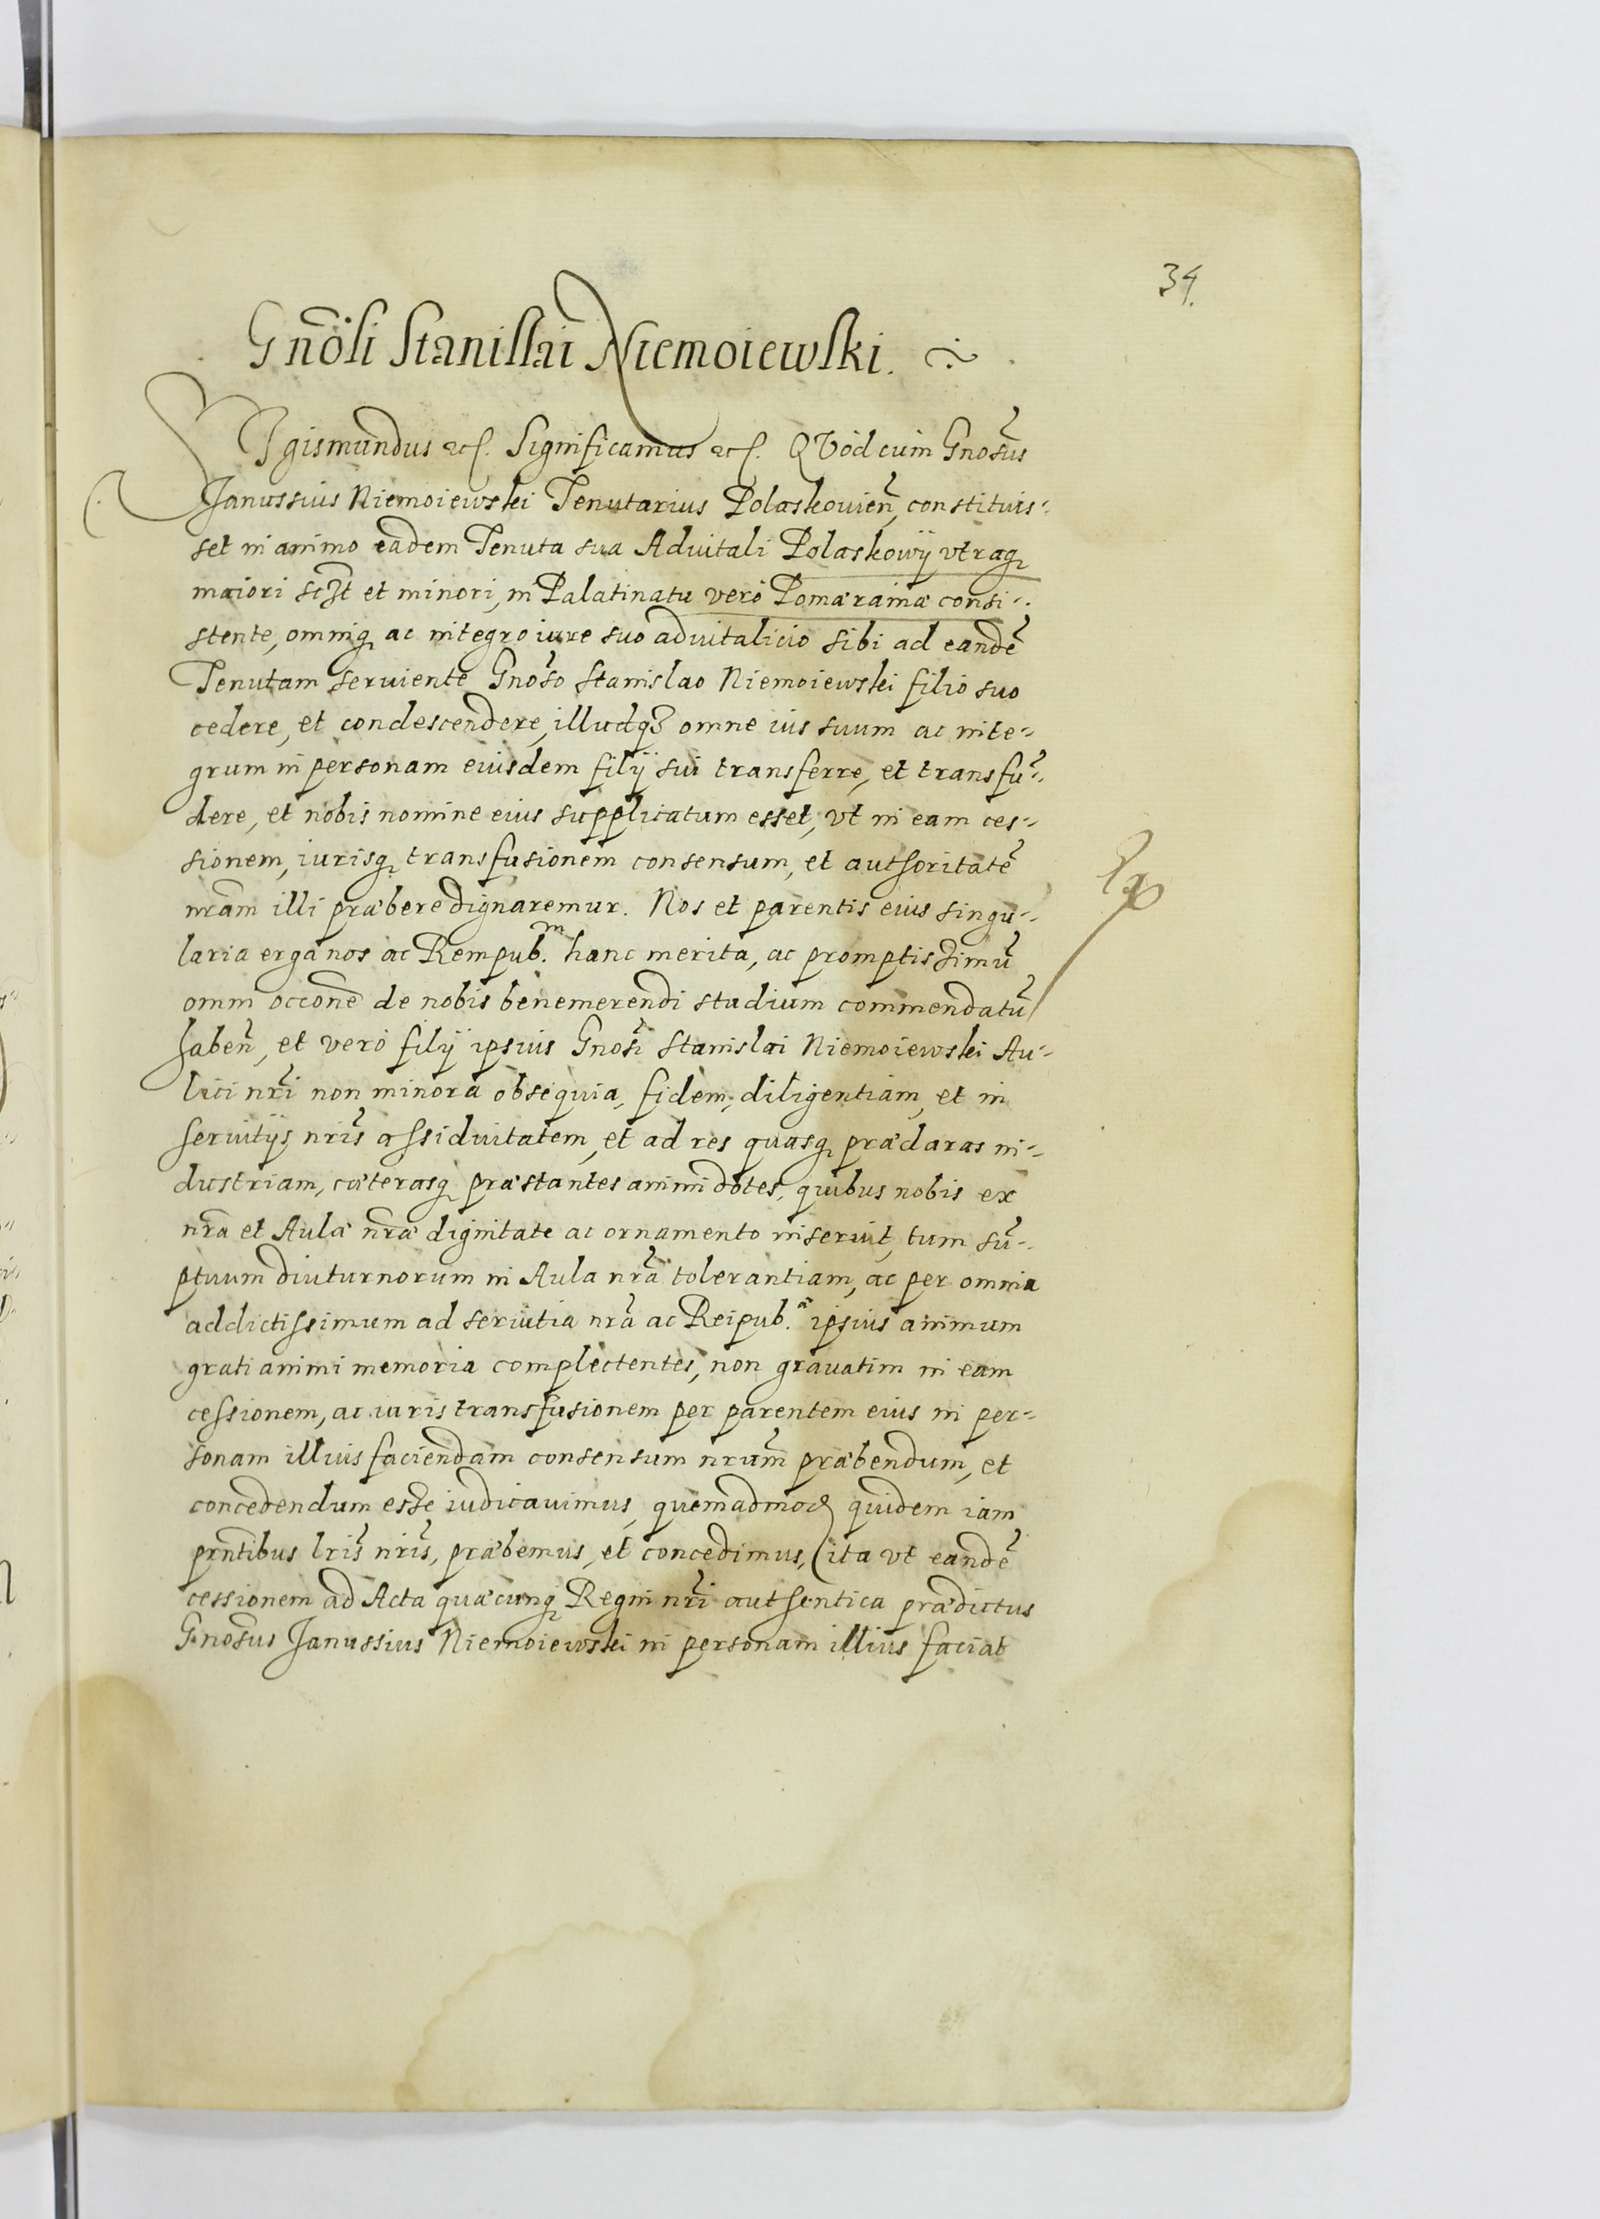 34.
Gnosi Stanislai Niemoiewski.
Sigismundus etc. Significamus etc. QVod cum Gnosus
Janussius Niemoiewski Tenutarius Polaskouien̄, constituis-
set in animo eadem Tenuta sua Aduitali Polaskowÿ vtraq
maiori sczt et minori, in Palatinatu verò Pomæraniæ consi-
stente, omniq ac integro iure suo aduitalicio sibi ad eandē
Tenutam seruiente Gnoso Stanislao Niemoiewski filio suo
cedere, et condescendere, illudqʒ omne ius suum ac inte-
grum in personam eiusdem filÿ sui transferre, et transfū-
dere, et nobis nomine eius supplicatum esset, vt in eam ces-
sionem, iurisq transfusionem consensum, et authoritatē
nram illi præbere dignaremur. Nos et parentis eius singu-
laria ergà nos ac Rempub.m hanc merita, ac promptissimū
omni occone de nobis benemerendi studium commendatū
haben̄, et verò filÿ ipsius Gnosi Stanislai Niemoiewski Au-
lici nri non minora obsequia, fidem, diligentiam, et in
seruitÿs nris assiduitatem, et ad res quasq præclaras in-
dustriam, cæterasq præstantes animi dotes, quibus nobis ex
nra et Aulæ nræ dignitate ac ornamento inseruit, tum sū-
ptuum diuturnorum in Aula nra tolerantiam, ac per omnia
addictissimum ad seruitia nra ac Reipub.æ ipsius animum
grati animi memoria complectentes, non grauatim in eam
cessionem, ac iuris transfusionem per parentem eius in per-
sonam illius faciendam consensum nrum præbendum, et
concedendum esse iudicauimus, quemadmod quidem iam
prntibus lris nris, præbemus, et concedimus, (ita vt eandē
cessionem ad Acta quæcunq Regni nri authentica prædictus
Gnosus Janussius Niemoiewski in personam illius faciat